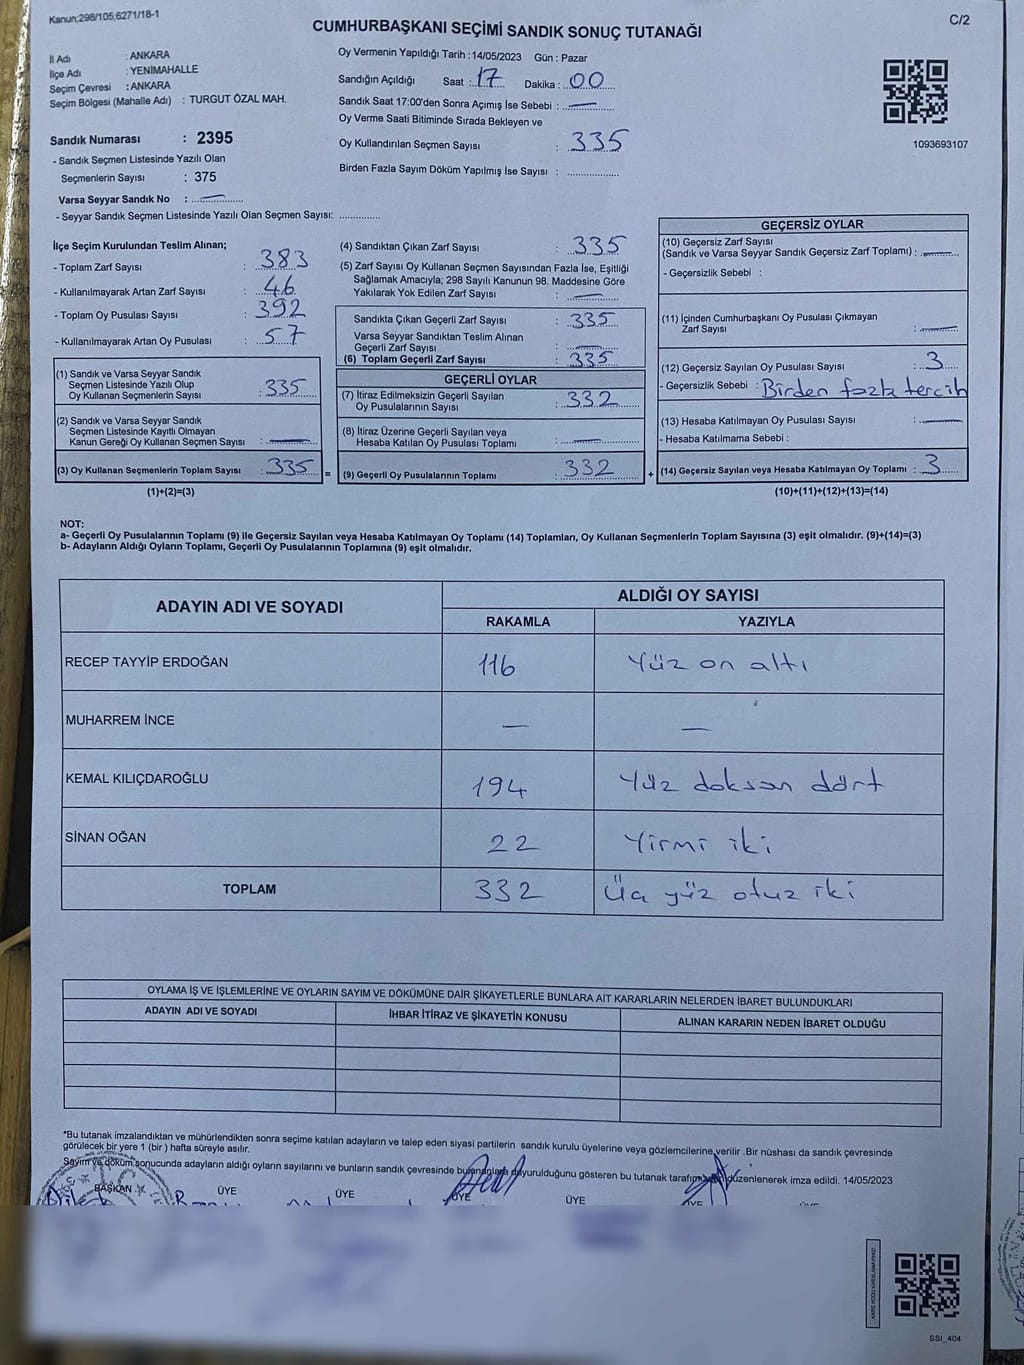 Kanun;298/105;6271/18-1
C/2
CUMHURBAŞKANI SEÇİMİ SANDIK SONUÇ TUTANAĞI
İl Adı : ANKARA
İlçe Adı : YENİMAHALLE
Seçim Çevresi : ANKARA
Seçim Bölgesi (Mahalle Adı) : TURGUT ÖZAL MAH.
Sandık Numarası : 2395
- Sandık Seçmen Listesinde Yazılı Olan
Seçmenlerin Sayısı : 375
Varsa Seyyar Sandık No : —
- Seyyar Sandık Seçmen Listesinde Yazılı Olan Seçmen Sayısı: ............
Oy Vermenin Yapıldığı Tarih : 14/05/2023 Gün : Pazar
Sandığın Açıldığı Saat : 17 Dakika : 00
Sandık Saat 17:00'den Sonra Açımış İse Sebebi : —
Oy Verme Saati Bitiminde Sırada Bekleyen ve
Oy Kullandırılan Seçmen Sayısı : 335
Birden Fazla Sayım Döküm Yapılmış İse Sayısı : ...............
1093693107
İlçe Seçim Kurulundan Teslim Alınan;
- Toplam Zarf Sayısı : 383
- Kullanılmayarak Artan Zarf Sayısı : 46
- Toplam Oy Pusulası Sayısı : 392
- Kullanılmayarak Artan Oy Pusulası : 57
(1) Sandık ve Varsa Seyyar Sandık
Seçmen Listesinde Yazılı Olup
Oy Kullanan Seçmenlerin Sayısı : 335
(2) Sandık ve Varsa Seyyar Sandık
Seçmen Listesinde Kayıtlı Olmayan
Kanun Gereği Oy Kullanan Seçmen Sayısı : —
(3) Oy Kullanan Seçmenlerin Toplam Sayısı : 335
(1)+(2)=(3)
(4) Sandıktan Çıkan Zarf Sayısı : 335
(5) Zarf Sayısı Oy Kullanan Seçmen Sayısından Fazla İse, Eşitliği
Sağlamak Amacıyla; 298 Sayılı Kanunun 98. Maddesine Göre
Yakılarak Yok Edilen Zarf Sayısı : —
Sandıkta Çıkan Geçerli Zarf Sayısı : 335
Varsa Seyyar Sandıktan Teslim Alınan
Geçerli Zarf Sayısı : —
(6) Toplam Geçerli Zarf Sayısı : 335
GEÇERLİ OYLAR
(7) İtiraz Edilmeksizin Geçerli Sayılan
Oy Pusulalarının Sayısı : 332
(8) İtiraz Üzerine Geçerli Sayılan veya
Hesaba Katılan Oy Pusulası Toplamı : —
= (9) Geçerli Oy Pusulalarının Toplamı : 332 +
GEÇERSİZ OYLAR
(10) Geçersiz Zarf Sayısı
(Sandık ve Varsa Seyyar Sandık Geçersiz Zarf Toplamı) : —
- Geçersizlik Sebebi :
(11) İçinden Cumhurbaşkanı Oy Pusulası Çıkmayan
Zarf Sayısı : —
(12) Geçersiz Sayılan Oy Pusulası Sayısı : 3
- Geçersizlik Sebebi : Birden fazla tercih
(13) Hesaba Katılmayan Oy Pusulası Sayısı : —
- Hesaba Katılmama Sebebi :
(14) Geçersiz Sayılan veya Hesaba Katılmayan Oy Toplamı : 3
(10)+(11)+(12)+(13)=(14)
NOT:
a- Geçerli Oy Pusulalarının Toplamı (9) ile Geçersiz Sayılan veya Hesaba Katılmayan Oy Toplamı (14) Toplamları, Oy Kullanan Seçmenlerin Toplam Sayısına (3) eşit olmalıdır. (9)+(14)=(3)
b- Adayların Aldığı Oyların Toplamı, Geçerli Oy Pusulalarının Toplamına (9) eşit olmalıdır.
ADAYIN ADI VE SOYADI ALDIĞI OY SAYISI
RAKAMLA YAZIYLA
RECEP TAYYİP ERDOĞAN 116 Yüz on altı
MUHARREM İNCE — —
KEMAL KILIÇDAROĞLU 194 Yüz doksan dört
SİNAN OĞAN 22 Yirmi iki
TOPLAM 332 Üç yüz otuz iki
OYLAMA İŞ VE İŞLEMLERİNE VE OYLARIN SAYIM VE DÖKÜMÜNE DAİR ŞİKAYETLERLE BUNLARA AİT KARARLARIN NELERDEN İBARET BULUNDUKLARI
ADAYIN ADI VE SOYADI İHBAR İTİRAZ VE ŞİKAYETİN KONUSU ALINAN KARARIN NEDEN İBARET OLDUĞU
*Bu tutanak imzalandıktan ve mühürlendikten sonra seçime katılan adayların ve talep eden siyasi partilerin sandık kurulu üyelerine veya gözlemcilerine verilir .Bir nüshası da sandık çevresinde
görülecek bir yere 1 (bir ) hafta süreyle asılır.
Sayım ve döküm sonucunda adayların aldığı oyların sayılarını ve bunların sandık çevresinde duyurulduğunu gösteren bu tutanak düzenlenerek imza edildi. 14/05/2023
BAŞKAN ÜYE ÜYE ÜYE ÜYE ÜYE
SSI_404